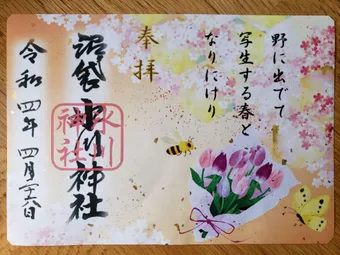 野に出でて
写生する春と
なりにけり
奉拝
沼袋氷川神社
氷川
神社
令和四年四月二十八日